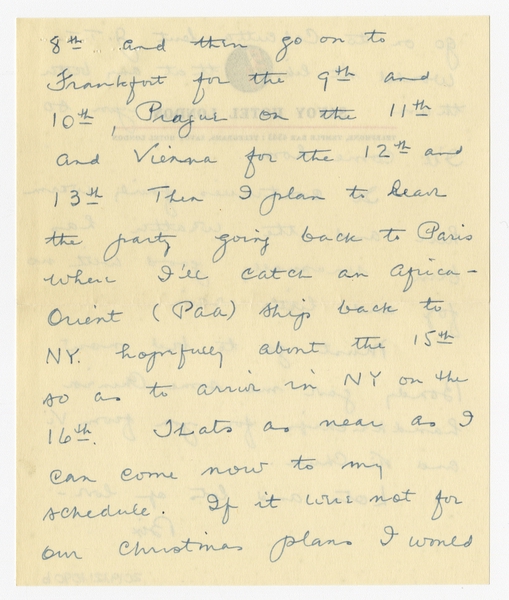 8th and then go on to
Frankfort for the 9th and
10th, Prague on the 11th
and Vienna for the 12th and
13th Then I plan to leave
the party going back to Paris
where I'll catch an Africa-
Orient (PAA) ship back to
NY. hopfully about the 15th
so as to arrive in NY on the
16th. Thats as near as I
can come now to my
schedule. If it were not for
our Christmas plans I would